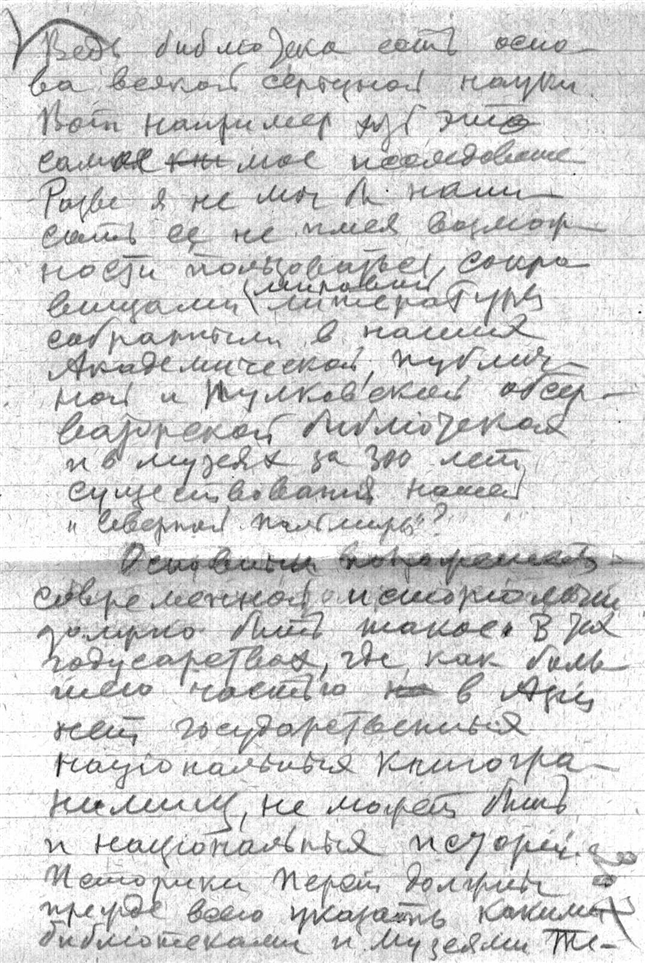 Ведь библіотека есть осно-
ва всякой серьезной науки.
Вот например хоть это
самое мое изследование
Разве я не мог бы напи-
сать ее не имея возмож-
ности пользоваться сокро-
вищами мировой литературы
собранными в наших
Академической, публич-
ной и Пулковской обсер-
ваторской библіотеках
и в музеях за 300 лет
существования нашей
"северной пальмиры"?
Основным
современной
должно быть такое. В тех
государствах, где как боль-
шею частью в Азіи
нет государственных
національных книгохра-
нилищ, не может быть
и національных исторій.
Историки долж
прежде всего указать какими
библіотеками и музеями